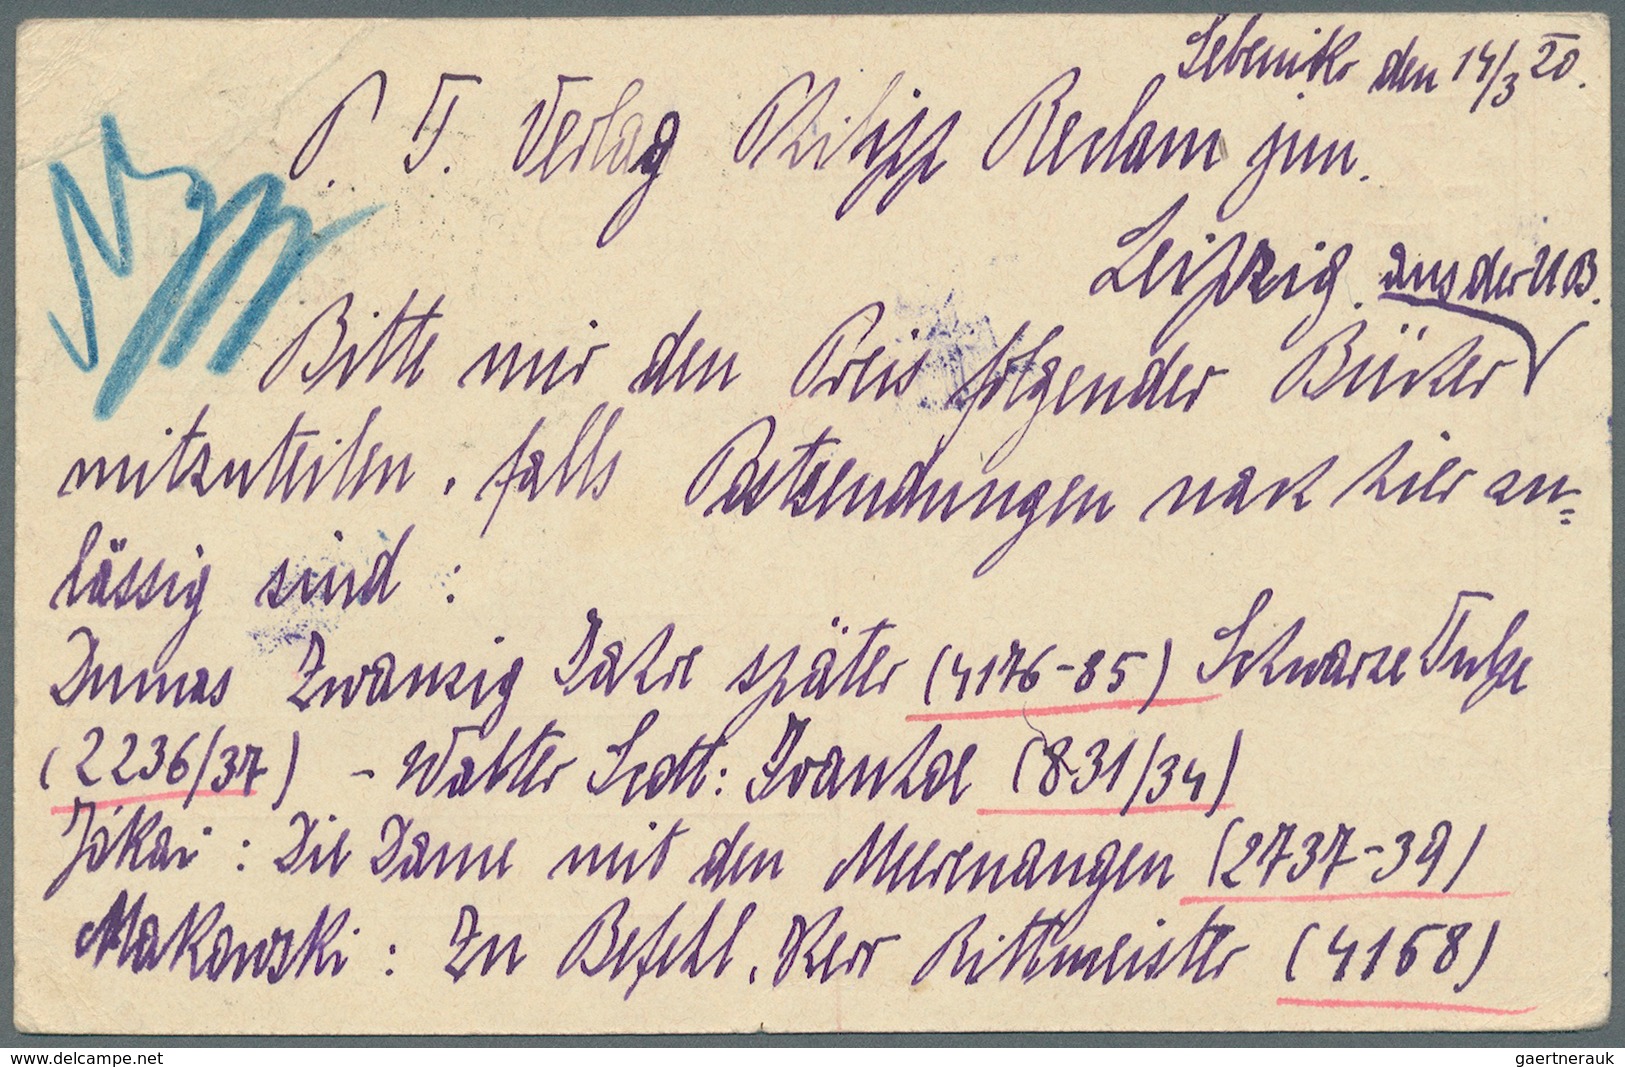 Sebenik den 14/3 20.
P. T. Verlag Philipp Reclam jun.
Leipzig. aus der UB.
Bitte mir den Preis folgender Bücher
mitzuteilen, falls Postsendungen nach hier zu-
lässig sind:
Dumas Zwanzig Jahre später (4176-85) Schwarze Tulpe
(2236/37) – Walter Scott: Ivanhoe (831/34)
Jókai: Die Dame mit den Meeraugen (2737-39)
Makowski: Zu Befehl, Herr Rittmeister (4168)
www.delcampe.net
gaertnerauk